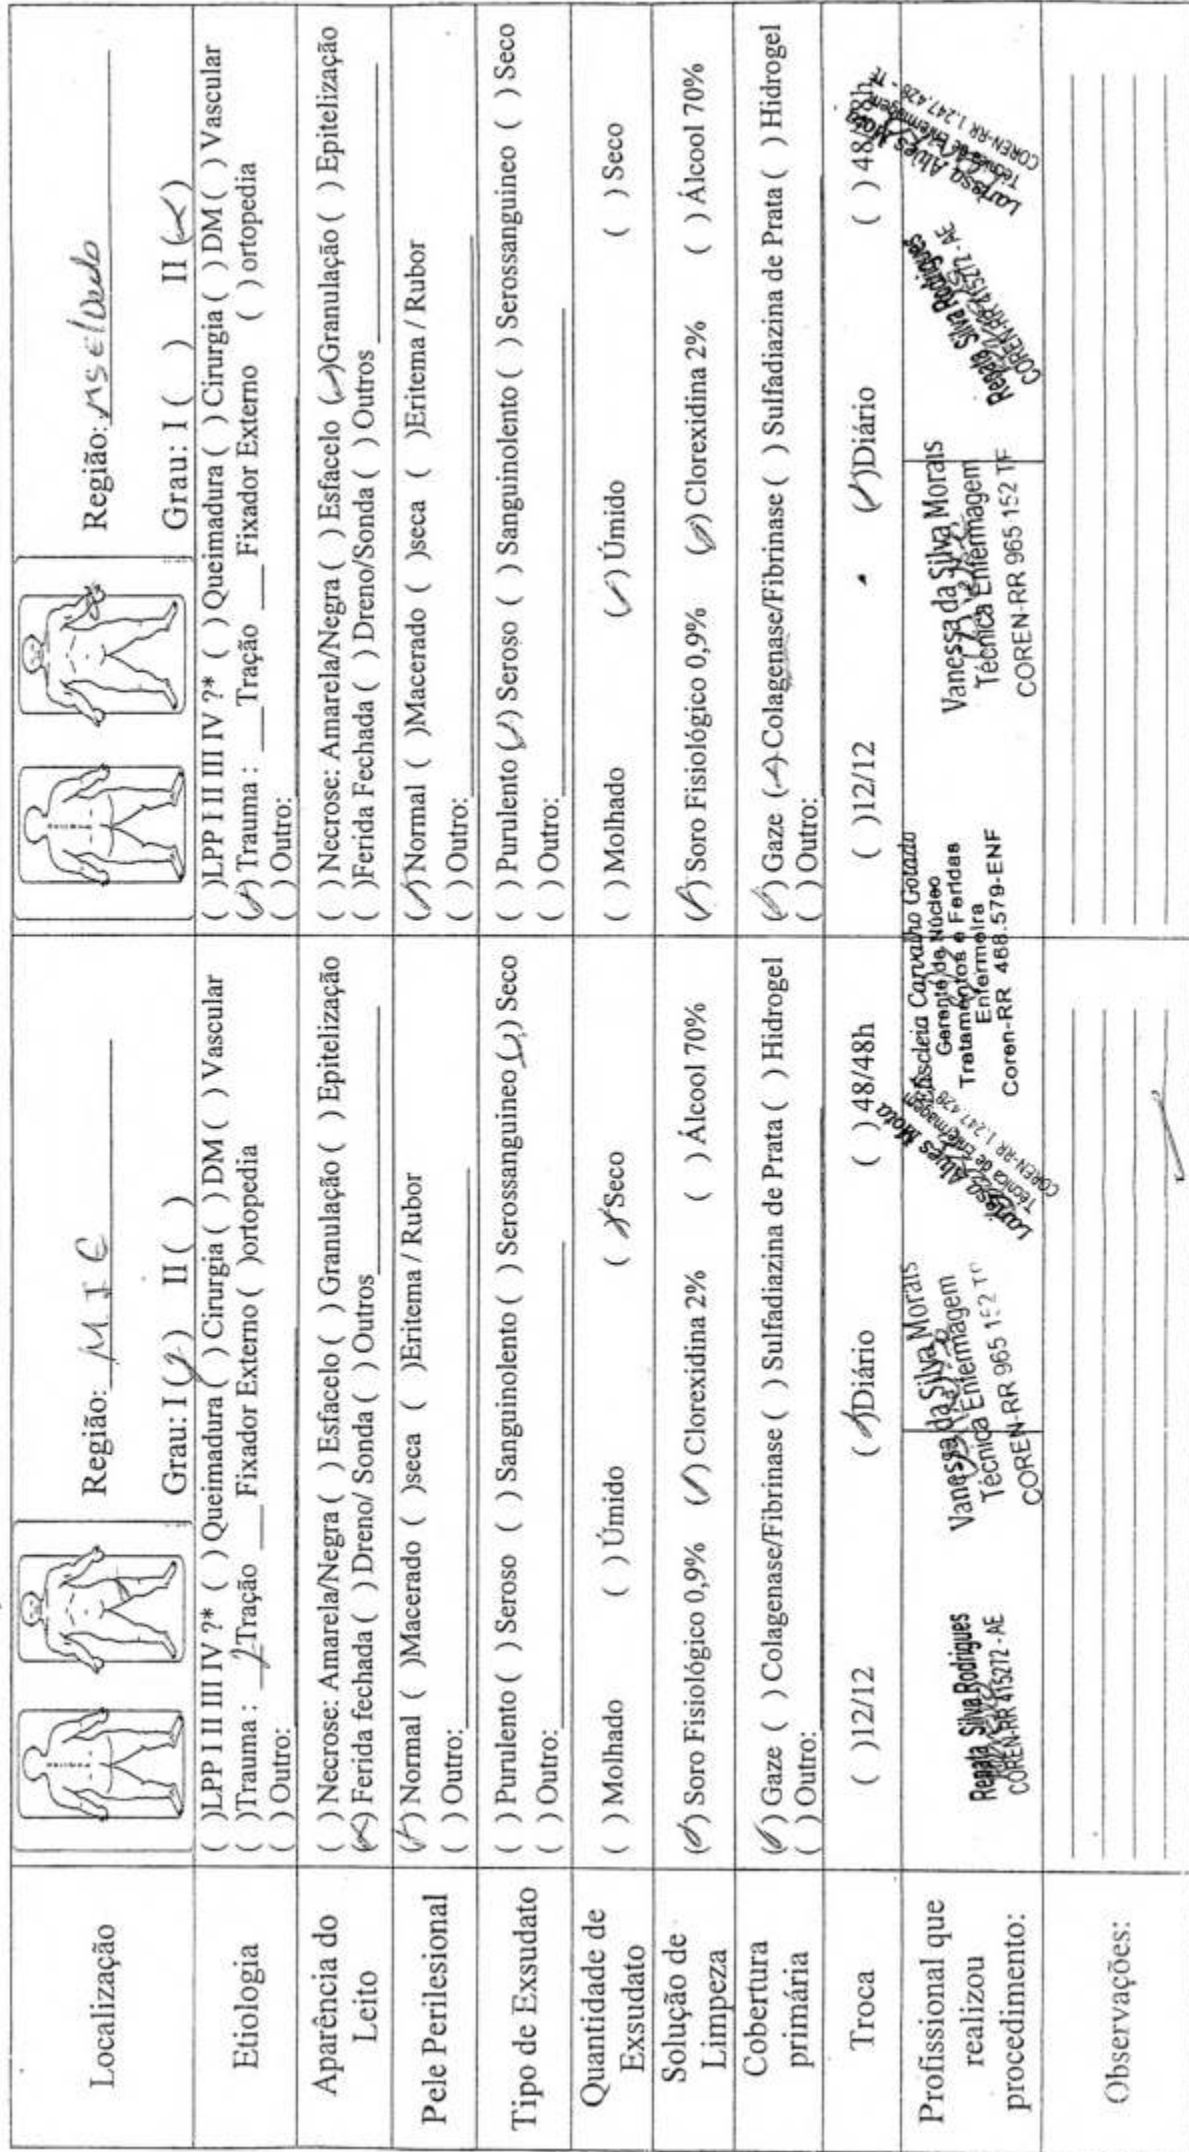 Localização
Região: M I E
Grau: I (x) II ( )
Região: MSE/Dedo
Grau: I ( ) II (x)
Etiologia
( )LPP I II III IV ?* ( ) Queimadura ( ) Cirurgia ( ) DM ( ) Vascular
( )Trauma : / Tração ___ Fixador Externo ( )ortopedia
( ) Outro:
( )LPP I II III IV ?* ( ) Queimadura ( ) Cirurgia ( ) DM ( ) Vascular
(x) Trauma : ___ Tração ___ Fixador Externo ( ) ortopedia
( ) Outro:
Aparência do
Leito
( ) Necrose: Amarela/Negra ( ) Esfacelo ( ) Granulação ( ) Epitelização
(x) Ferida fechada ( ) Dreno/ Sonda ( ) Outros
( ) Necrose: Amarela/Negra ( ) Esfacelo (x)Granulação ( ) Epitelização
( )Ferida Fechada ( ) Dreno/Sonda ( ) Outros
Pele Perilesional
(x) Normal ( )Macerado ( )seca ( )Eritema / Rubor
( ) Outro:
(x) Normal ( )Macerado ( )seca ( )Eritema / Rubor
( ) Outro:
Tipo de Exsudato
( ) Purulento ( ) Seroso ( ) Sanguinolento ( ) Serossanguineo (x) Seco
( ) Outro:
( ) Purulento (x) Seroso ( ) Sanguinolento ( ) Serossanguineo ( ) Seco
( ) Outro:
Quantidade de
Exsudato
( ) Molhado ( ) Úmido (x)Seco
( ) Molhado (x) Úmido ( ) Seco
Solução de
Limpeza
(x) Soro Fisiológico 0,9% (x) Clorexidina 2% ( ) Álcool 70%
(x) Soro Fisiológico 0,9% (x) Clorexidina 2% ( ) Álcool 70%
Cobertura
primária
(x) Gaze ( ) Colagenase/Fibrinase ( ) Sulfadiazina de Prata ( ) Hidrogel
( ) Outro:
(x) Gaze (x) Colagenase/Fibrinase ( ) Sulfadiazina de Prata ( ) Hidrogel
( ) Outro:
Troca
( )12/12 (x)Diário ( ) 48/48h
( )12/12 (x)Diário ( ) 48/48h
Profissional que
realizou
procedimento:
Renata Silva Rodrigues
COREN-RR 415272 - AE
Vanessa da Silva Morais
Técnica Enfermagem
COREN-RR 965 152 TF
Larissa Alves Mota
Técnica de Enfermagem
COREN-RR 1.247.426
Carvalho Golado
Gerente do Núcleo
Tratamentos e Feridas
Enfermeira
Coren-RR 468.579-ENF
Vanessa da Silva Morais
Técnica Enfermagem
COREN-RR 965 152 TF
Renata Silva Rodrigues
COREN-RR 415272 - AE
Larissa Alves Mota
Técnica de Enfermagem
COREN-RR 1.247.426 - TE
Observações: